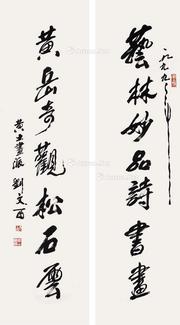 一九九九年
藝林妙品詩書畫
黄岳奇觀松石雲
黄土畫派劉文西